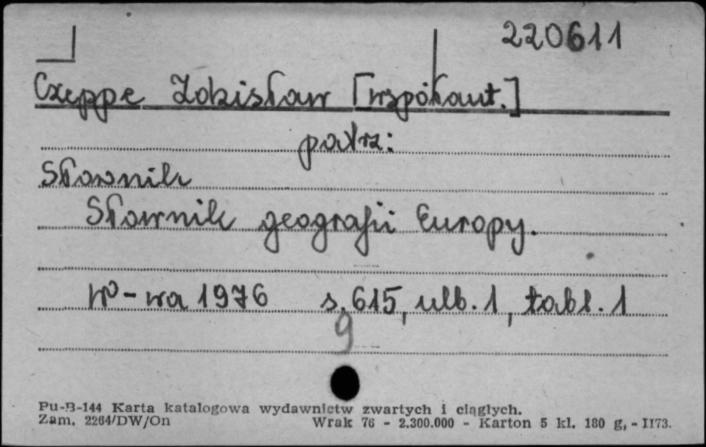 220611
Czeppe Zdzisław [współaut.]
patrz:
Słownik
Słownik geografii Europy.
W-wa 1976 s. 615, nlb. 1, tabl. 1
9
Pu-B-144 Karta katalogowa wydawnictw zwartych i ciągłych.
Zam. 2264/DW/On Wrak 76 - 2.300.000 - Karton 5 kl. 180 g, - II73.